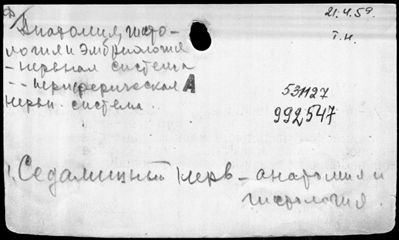 21.4.59.
Анатомия, гисто-
т.н.
логия и эмбриология
- нервная система
- - периферическая А
нервн. система.
53427
992547
Седалищный нерв - анатомия и
гистология.